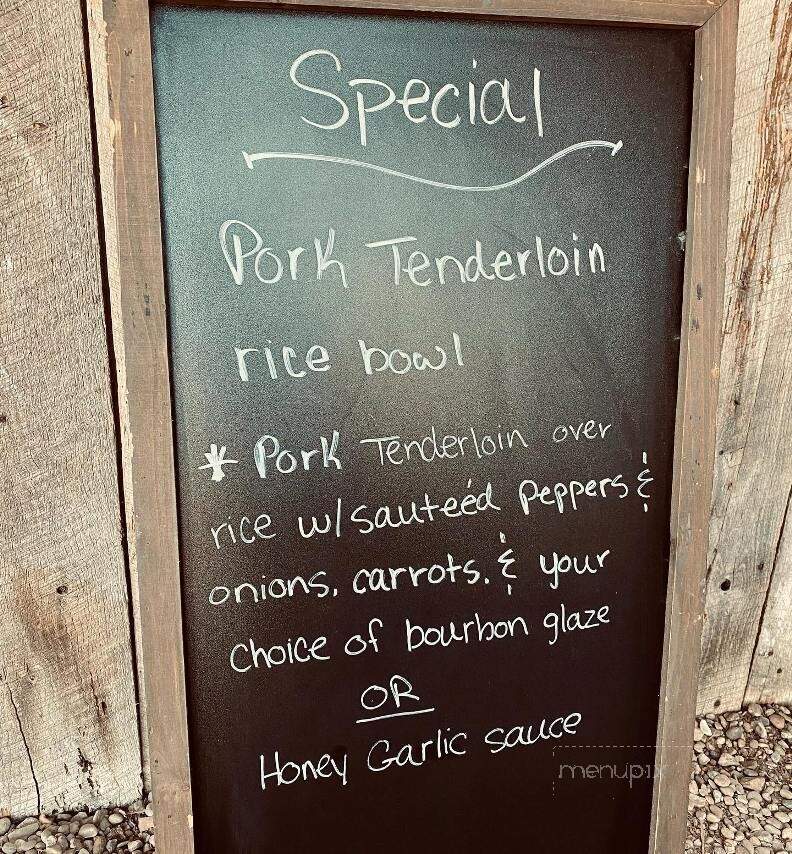 Special
Pork Tenderloin
rice bowl
* Pork Tenderloin over
rice w/ sauteéd Peppers &
onions, carrots, & your
choice of bourbon glaze
OR
Honey Garlic sauce
menupix